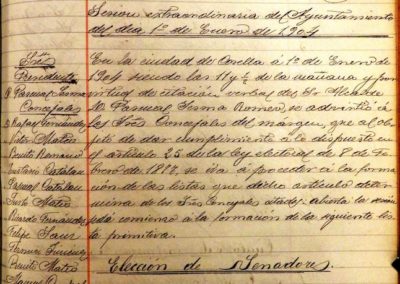 Sesion extraordinaria del Ayuntamiento
del dia 1º de Enero de 1904
Sres
Presidente
D. Pascual Serma
Concejales
D. Rafael Fernandez
Victor Mateo
Benito
Pascual Catalan
Justo Mateo
Ricardo Fernandez
Felipe Sanz
Benito Mateo
En la ciudad de Corella á 1º de Enero de
1904 siendo las 11 y ½ de la mañana y por
virtud de citación verbal del Sr Alcalde
D. Pascual Serma Romeo, se
los Sres Concejales del margen, que al ob-
jeto de dar cumplimiento á lo dispuesto en
el articulo 25 de la ley electoral de 8 de Fe-
brero de 1877, se iba á proceder á la forma-
ción de las listas que dicho articulo deter-
mina de los Sres Concejales
comienzo á la formación de la siguiente lis-
ta primitiva.
Elección de Senadores.